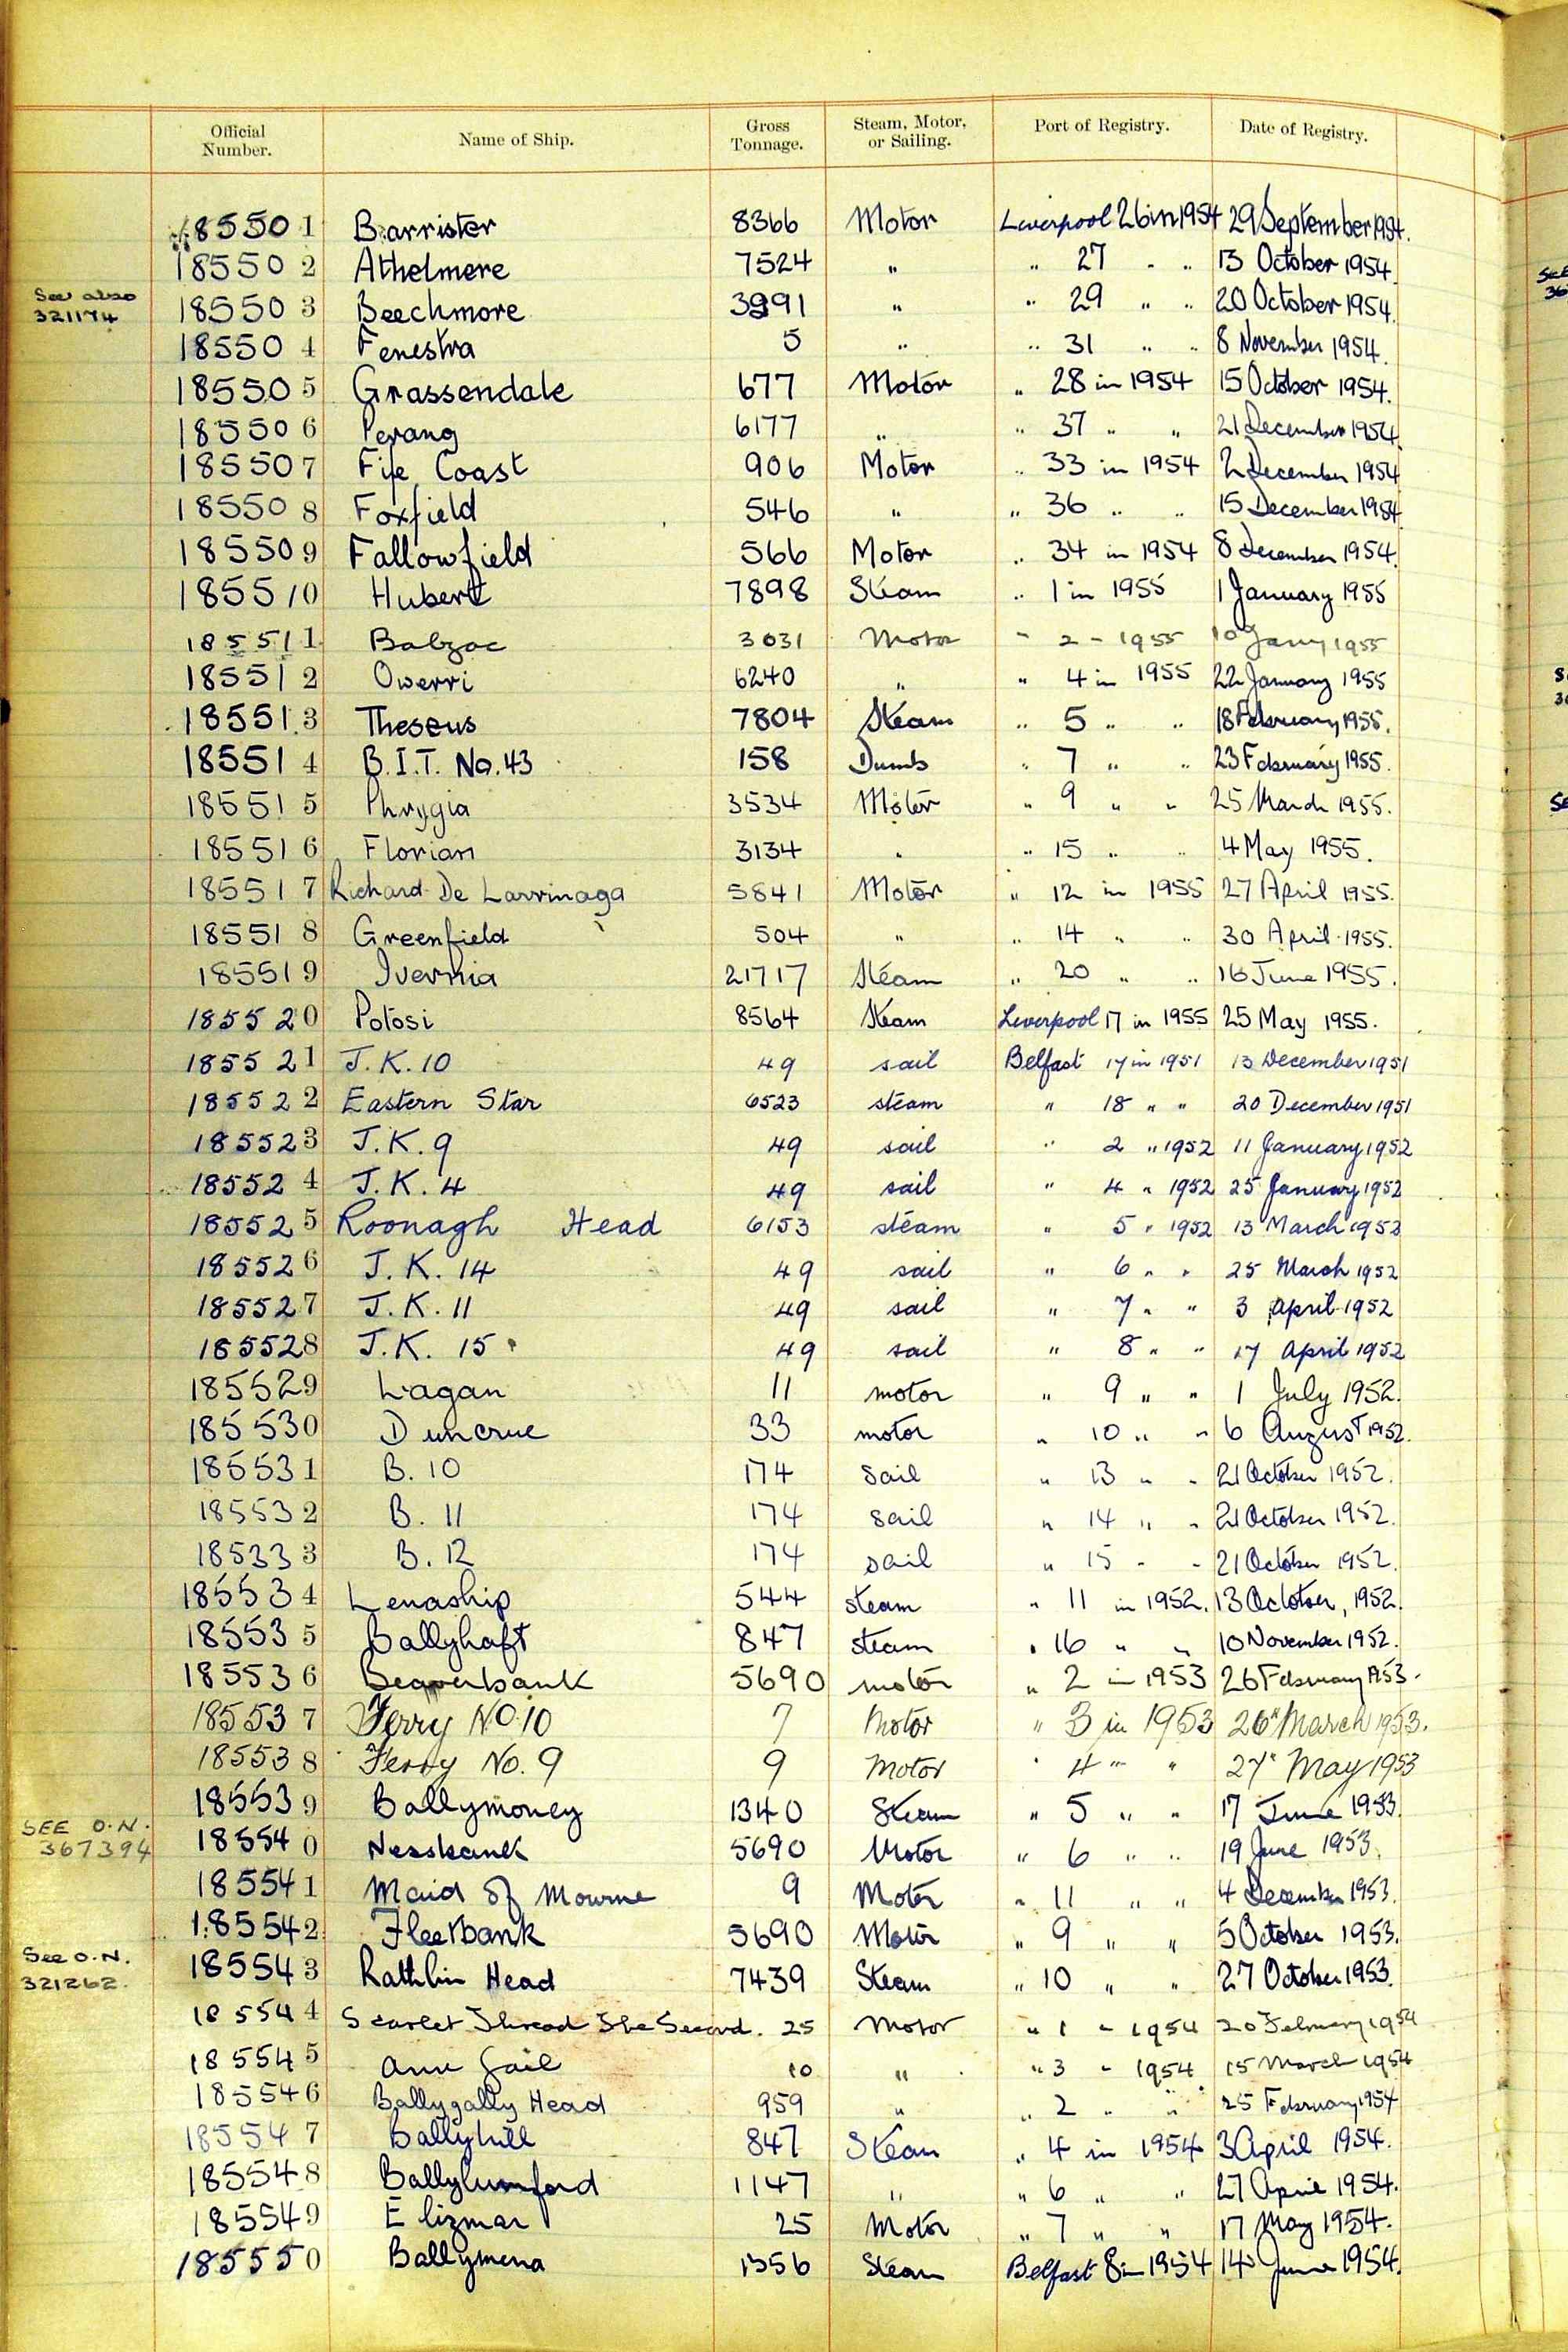 Official Number. Name of Ship. Gross Tonnage. Steam, Motor, or Sailing. Port of Registry. Date of Registry.
185501 Barrister 8366 Motor Liverpool 26 in 1954 29 September 1954.
185502 Athelmere 7524 " " 27 " " 13 October 1954
See also 321174 185503 Beechmore 3991 " " 29 " " 20 October 1954.
185504 Fenestra 5 " " 31 " " 8 November 1954.
185505 Grassendale 677 Motor " 28 in 1954 15 October 1954.
185506 Perang 6177 " " 37 " " 21 December 1954.
185507 Fife Coast 906 Motor " 33 in 1954 2 December 1954
185508 Foxfield 546 " " 36 " " 15 December 1954
185509 Fallowfield 566 Motor " 34 in 1954 8 December 1954.
185510 Hubert 7898 Steam " 1 in 1955 1 January 1955
185511 Balzac 3031 Motor " 2 - 1955 10 Jany 1955
185512 Owerri 6240 " " 4 in 1955 22 January 1955
185513 Theseus 7804 Steam " 5 " " 18 February 1955.
185514 B.I.T. No. 43 158 Dumb " 7 " " 23 February 1955.
185515 Phrygia 3534 Motor " 9 " " 25 March 1955.
185516 Florian 3134 " " 15 " " 4 May 1955.
185517 Richard De Larrinaga 5841 Motor " 12 in 1955 27 April 1955.
185518 Greenfield 504 " " 14 " " 30 April 1955.
185519 Ivernia 21717 Steam " 20 " " 16 June 1955.
185520 Potosi 8564 Steam Liverpool 17 in 1955 25 May 1955.
185521 J.K. 10 49 sail Belfast 17 in 1951 13 December 1951
185522 Eastern Star 6523 steam " 18 " " 20 December 1951
185523 J.K. 9 49 sail " 2 " 1952 11 January 1952
185524 J.K. 4 49 sail " 4 " 1952 25 January 1952
185525 Roonagh Head 6153 steam " 5 " 1952 13 March 1952
185526 J.K. 14 49 sail " 6 " " 25 March 1952
185527 J.K. 11 49 sail " 7 " " 3 April 1952
185528 J.K. 15 49 sail " 8 " " 17 April 1952
185529 Lagan 11 motor " 9 " " 1 July 1952.
185530 Duncrue 33 motor " 10 " " 6 August 1952.
185531 B. 10 174 Sail " 13 " " 21 October 1952.
185532 B. 11 174 Sail " 14 " " 21 October 1952.
185533 B. 12 174 sail " 15 " " 21 October 1952.
185534 Lenaship 544 steam " 11 in 1952. 13 October, 1952.
185535 Ballyhaft 847 steam " 16 " " 10 November 1952.
185536 Beaverbank 5690 motor " 2 in 1953 26 February 1953.
185537 Ferry No. 10 7 Motor " 3 in 1953 26" March 1953.
185538 Ferry No. 9 9 Motor " 4 " " 27" May 1953
185539 Ballymoney 1340 Steam " 5 " " 17 June 1953.
SEE O.N. 367394 185540 Nessbank 5690 Motor " 6 " " 19 June 1953.
185541 Maid of Mourne 9 Motor " 11 " " 4 December 1953.
185542 Fleetbank 5690 Motor " 9 " " 5 October 1953.
See O.N. 321262. 185543 Rathlin Head 7439 Steam " 10 " " 27 October 1953.
185544 Scarlet Thread The Second. 25 Motor " 1 - 1954 20 February 1954
185545 Ann Gail 10 " " 3 - 1954 15 March 1954
185546 Ballygally Head 959 " " 2 " " 25 February 1954
185547 Ballyhill 847 Steam " 4 in 1954 3 April 1954.
185548 Ballylumford 1147 " " 6 " " 27 April 1954.
185549 Elizmar 25 Motor " 7 " " 17 May 1954.
185550 Ballymena 1356 Steam Belfast 8 in 1954 14 June 1954.